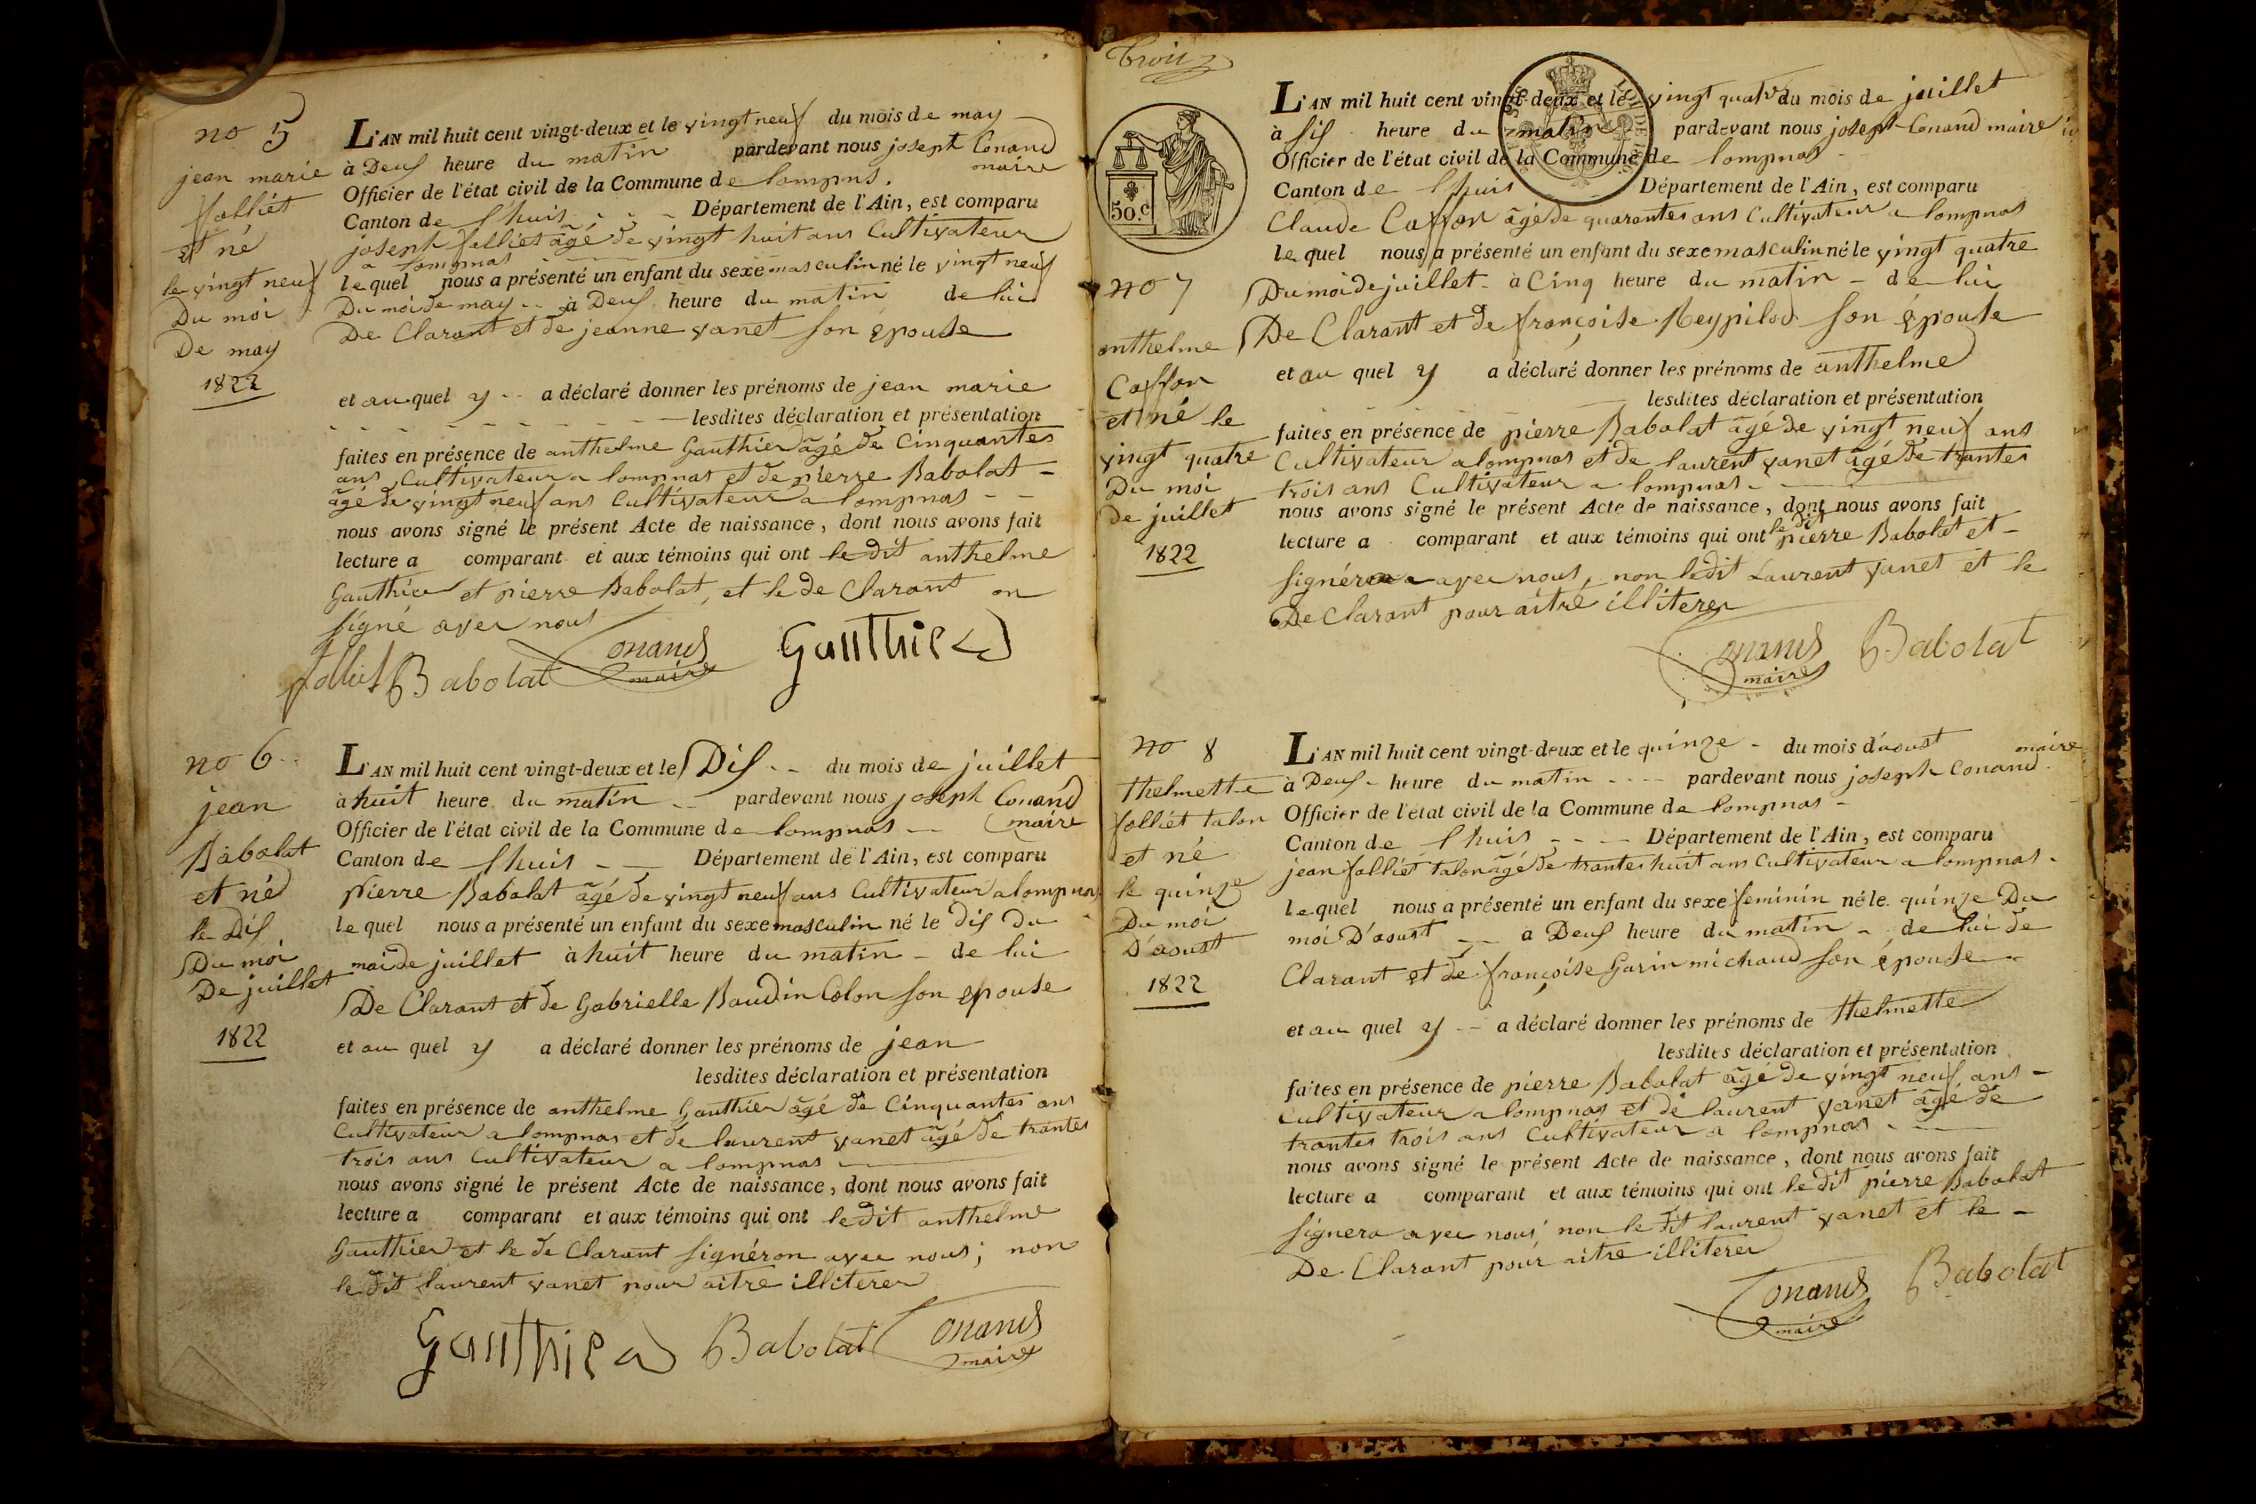 no 5
jean marie
folliet
et né
le vingt neuf
Du moi
De may
1822
L'AN mil huit cent vingt-deux et le vingt neuf du mois de may
à Deus heure du matin pardevant nous joseph Conand
maire
Officier de l'état civil de la Commune de lompnas.
Canton de lhuis Département de l'Ain, est comparu
joseph folliet âgé de vingt huit ans Cultivateur
a lompnas
lequel nous a présenté un enfant du sexe masculin né le vingt neuf
Du moi de may à Deus heure du matin de lui
De Clarant et de jeanne vanet son épouse
et au quel y a déclaré donner les prénoms de jean marie
lesdites déclaration et présentation
faites en présence de anthelme Gauthier âgé de Cinquantes
ans Cultivateur a lompnas et de pierre Babolat
âgé de vingt neuf ans Cultivateur a lompnas
nous avons signé le présent Acte de naissance, dont nous avons fait
lecture a comparant et aux témoins qui ont le dit anthelme
Gauthier et pierre Babolat, et le de Clarant on
signé avec nous
folliet Babolat Conand maire Gauthier
no 6
jean
Babolat
et né
le Dis
Du moi
De juillet
1822
L'AN mil huit cent vingt-deux et le Dis du mois de juillet
à huit heure du matin pardevant nous joseph Conand
maire
Officier de l'état civil de la Commune de lompnas
Canton de lhuis Département de l'Ain, est comparu
pierre Babolat âgé de vingt neuf ans Cultivateur a lompnas
le quel nous a présenté un enfant du sexe masculin né le dis du
moi de juillet à huit heure du matin de lui
De Clarant et de Gabrielle Baudin Colon son epouse
et au quel y a déclaré donner les prénoms de jean
lesdites déclaration et présentation
faites en présence de anthelme Gauthier âgé de Cinquantes ans
Cultivateur a lompnas et de laurent vanet âgé de trantes
trois ans Cultivateur a lompnas
nous avons signé le présent Acte de naissance, dont nous avons fait
lecture a comparant et aux témoins qui ont le dit anthelme
Gauthier et le de Clarant signéron avec nous; non
le dit laurent vanet pour aitre illiterer
Gauthier Babolat Conand maire
trois
50.c
no 7
anthelme
Caffon
et né le
vingt quatre
Du moi
De juillet
1822
L'AN mil huit cent vingt-deux et le vingt quatre du mois de juillet
à sis heure du matin pardevant nous joseph Conand maire
Officier de l'état civil de la Commune de lompnas
Canton de lhuis Département de l'Ain, est comparu
Claude Caffon âgé de quarantes ans Cultivateur a lompnas
le quel nous a présenté un enfant du sexe masculin né le vingt quatre
Du moi de juillet à Cinq heure du matin de lui
De Clarant et de françoise Reypilod son épouse
et au quel y a déclaré donner les prénoms de anthelme
lesdites déclaration et présentation
faites en présence de pierre Babolat âgé de vingt neuf ans
Cultivateur a lompnas et de laurent vanet âgé de trantes
trois ans Cultivateur a lompnas
nous avons signé le présent Acte de naissance, dont nous avons fait
lecture a comparant et aux témoins qui ont le dit pierre Babolat et
signéra avec nous, non ledit Laurent vanet et le
De Clarant pour aitre illiterer
Conand maire Babolat
no 8
thelmette
folliet talon
et né
le quinze
Du moi
D'aoust
1822
L'AN mil huit cent vingt-deux et le quinze du mois d'aoust
maire
à Deus heure du matin pardevant nous joseph Conand
Officier de l'état civil de la Commune de lompnas
Canton de lhuis Département de l'Ain, est comparu
jean folliet talon âgé de trantes huit ans Cultivateur a lompnas
lequel nous a présenté un enfant du sexe feminin né le quinze Du
moi D'aoust à Deus heure du matin de lui de
Clarant et de françoise Garin michaud son épouse
et au quel y a déclaré donner les prénoms de thelmette
lesdites déclaration et présentation
faites en présence de pierre Babolat âgé de vingt neuf ans
Cultivateur a lompnas et de laurent vanet âgé de
trantes trois ans Cultivateur a lompnas
nous avons signé le présent Acte de naissance, dont nous avons fait
lecture a comparant et aux témoins qui ont le dit pierre Babolat
signera avec nous, non le dit laurent vanet et le
De Clarant pour aitre illiterer
Conand maire Babolat